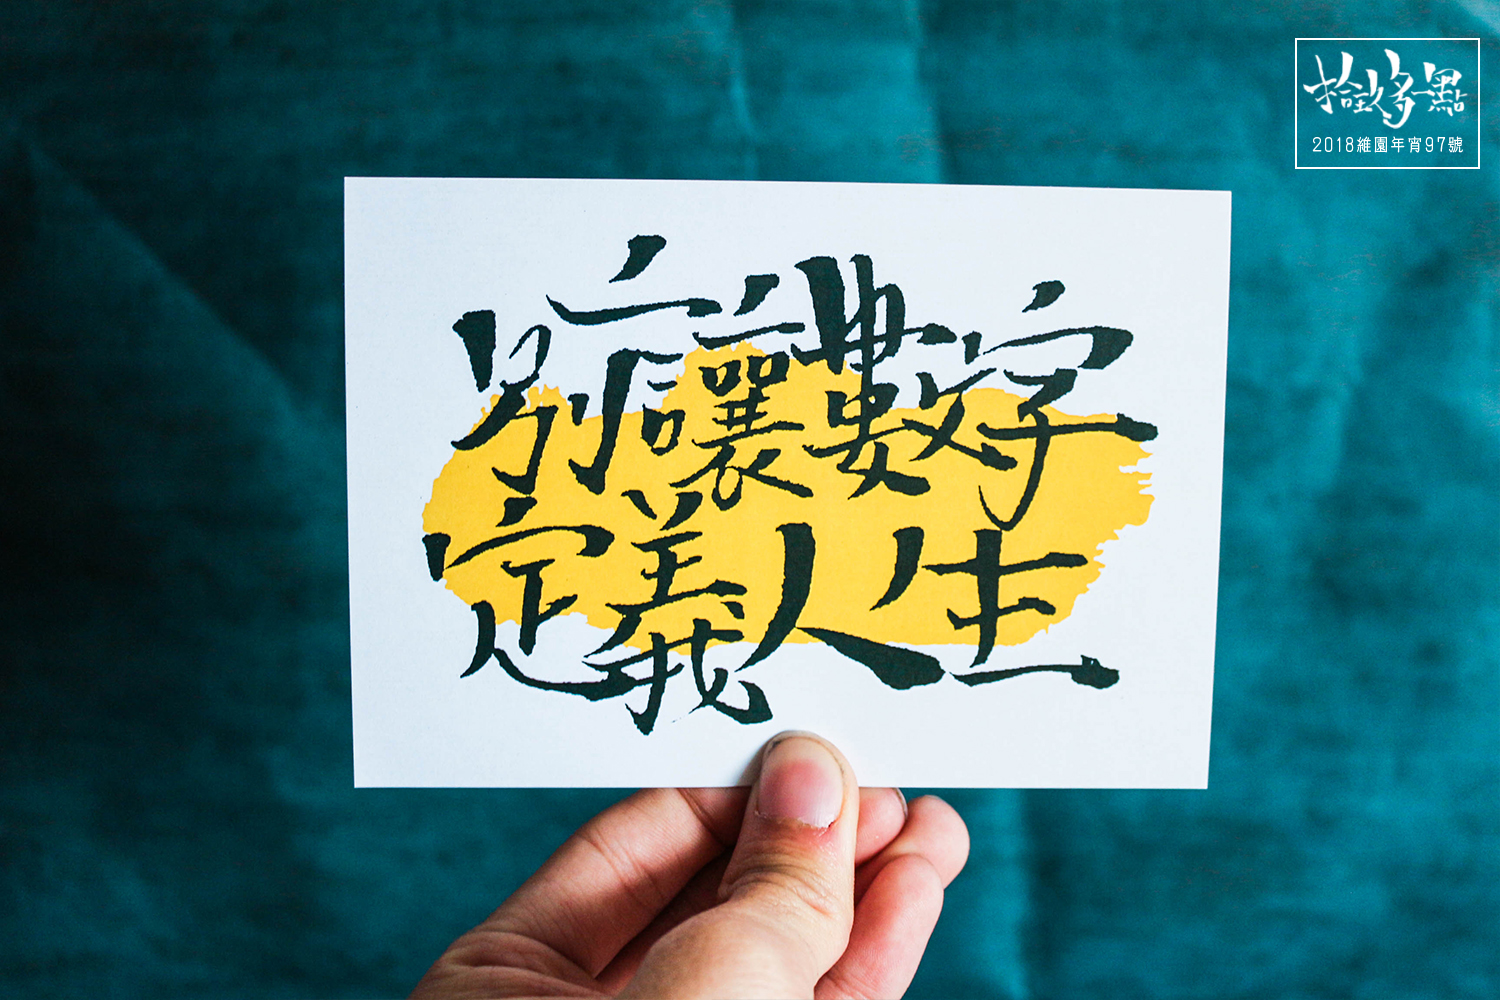 多一點
2018維園年宵97號
別讓數字
定義人生